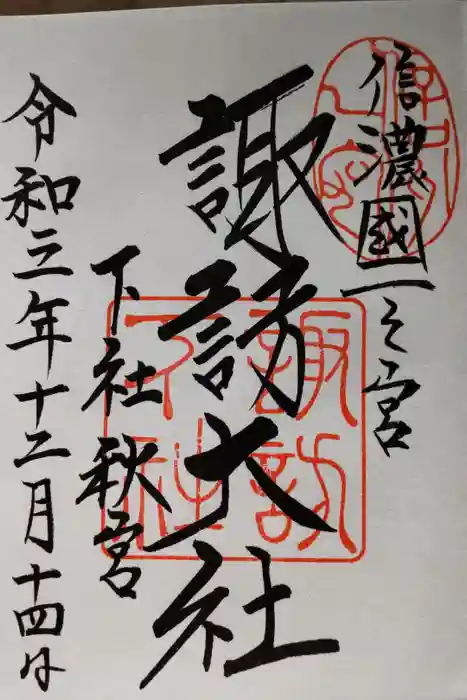 信濃國一之宮
諏訪大社
下社秋宮
令和三年十二月十四日
諏訪
大社